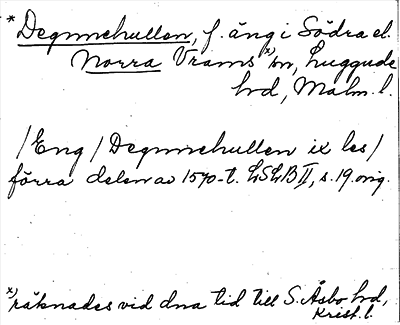 * Degnnehullen, f. äng i Södra el.
Norra Vrams x) sn, Luggude
hd, Malm. l.
/Eng/ Degnnehullen ix les/
förra delen av 1570-t. LSLB II, s. 19. orig.
x) räknades vid dna tid till S. Åsbo hd,
Krist. l.